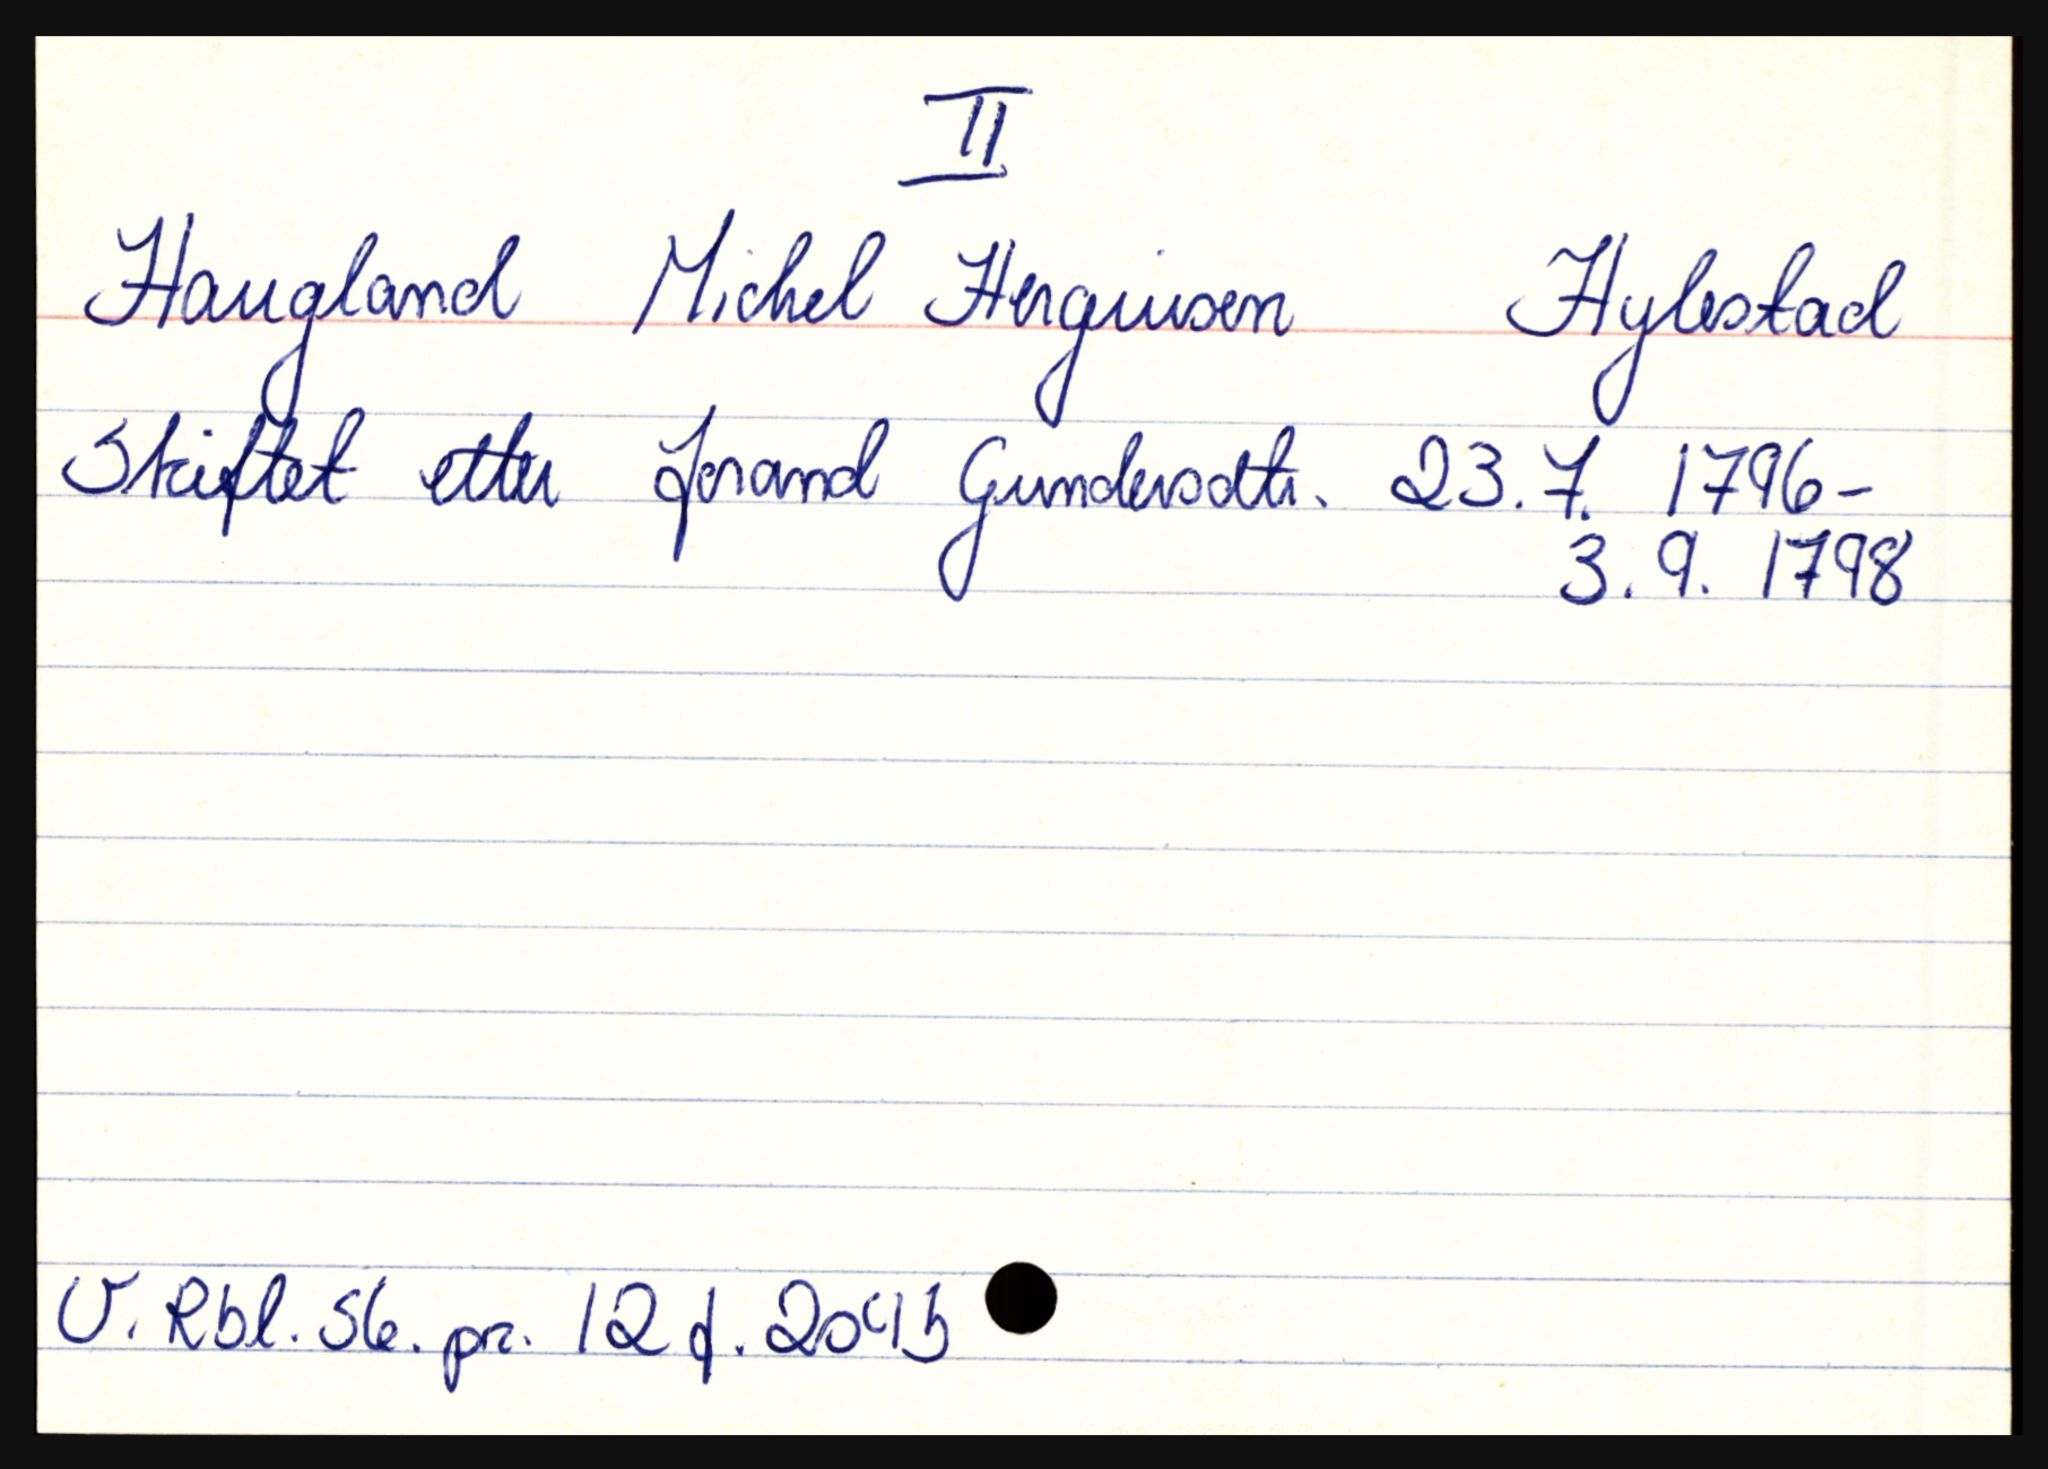 II
Haugland Michel Herguisen Hylestad
Skiftet etter Jorand Gundersdtr. 23. 7. 1796-
3. 9. 1798
V. Rbl. 56. pr. 12 f. 204b